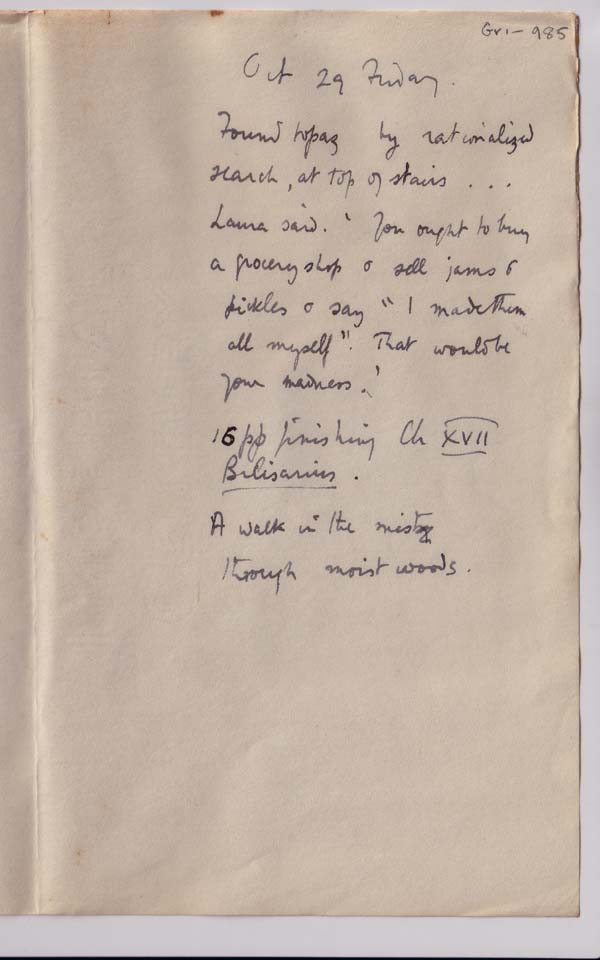 Gri - 985
Oct 29 Friday.
Found topaz by rationalized
search, at top of stairs . . .
Laura said. ' You ought to buy
a grocery shop & sell jams &
pickles & say " I made them
all myself". That would be
your madness.'
16 pp finishing Ch XVII
Belisarius.
A walk in the mist
through moist woods.